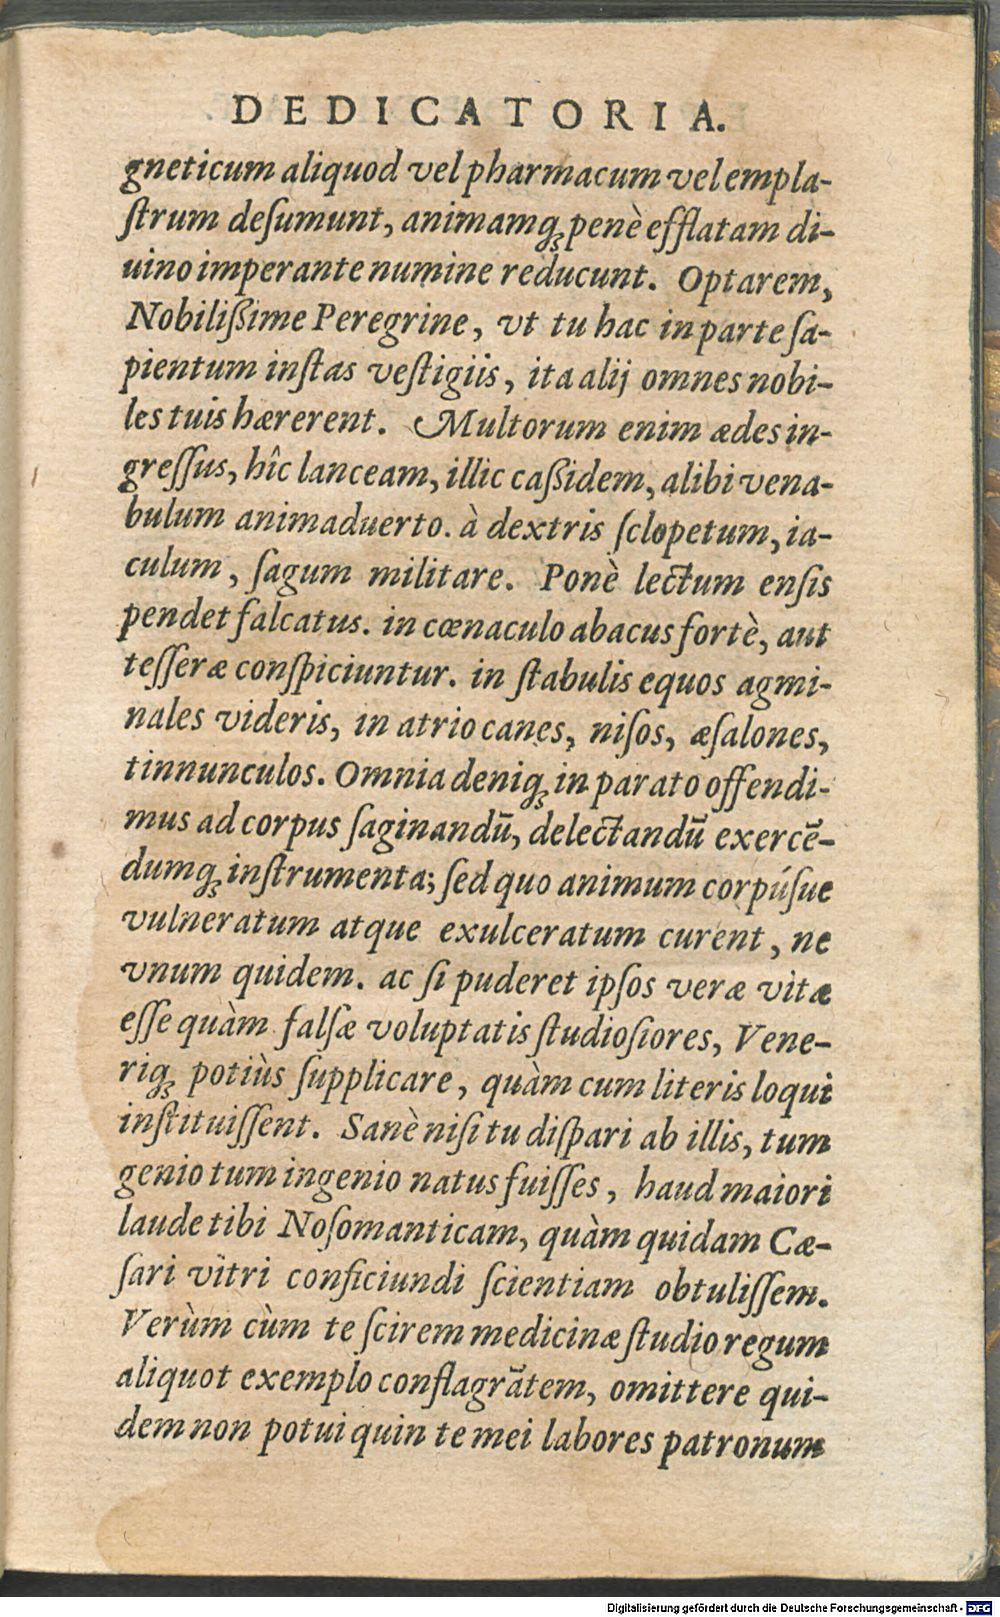 DEDICATORIA.
gneticum aliquod vel pharmacum vel empla-
ſtrum deſumunt, animamq́ꝫ penè efflatam di-
uino imperante numine reducunt. Optarem,
Nobilißime Peregrine, vt tu hac in parte ſa-
pientum inſtas veſtigiis, ita alij omnes nobi-
les tuis hærerent. Multorum enim ædes in-
greſſus, hîc lanceam, illic caßidem, alibi vena-
bulum animaduerto. à dextris ſclopetum, ia-
culum, ſagum militare. Ponè lectum enſis
pendet falcatus. in cœnaculo abacus fortè, aut
teſſeræ conſpiciuntur. in ſtabulis equos agmi-
nales videris, in atrio canes, niſos, æſalones,
tinnunculos. Omnia deniqꝫ in parato offendi-
mus ad corpus ſaginandū, delectandū exercē-
dumqꝫ inſtrumenta; ſed quo animum corpúſue
vulneratum atque exulceratum curent, ne
vnum quidem. ac ſi puderet ipſos veræ vitæ
eſſe quàm falſæ voluptatis ſtudioſiores, Vene-
riqꝫ potiùs ſupplicare, quàm cum literis loqui
inſtituiſſent. Sanè niſi tu diſpari ab illis, tum
genio tum ingenio natus fuiſſes, haud maiori
laude tibi Noſomanticam, quàm quidam Cæ-
ſari vitri conficiundi ſcientiam obtuliſſem.
Verùm cùm te ſcirem medicinæ ſtudio regum
aliquot exemplo conflagrātem, omittere qui-
dem non potui quin te mei labores patronum
Digitalisierung gefördert durch die Deutsche Forschungsgemeinschaft - DFG